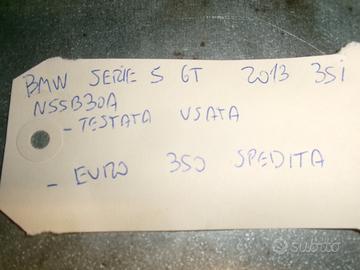 BMW SERIE 5 GT 2013 35I
N55B30A
- TESTATA USATA
- EURO 350 SPEDITA
subito